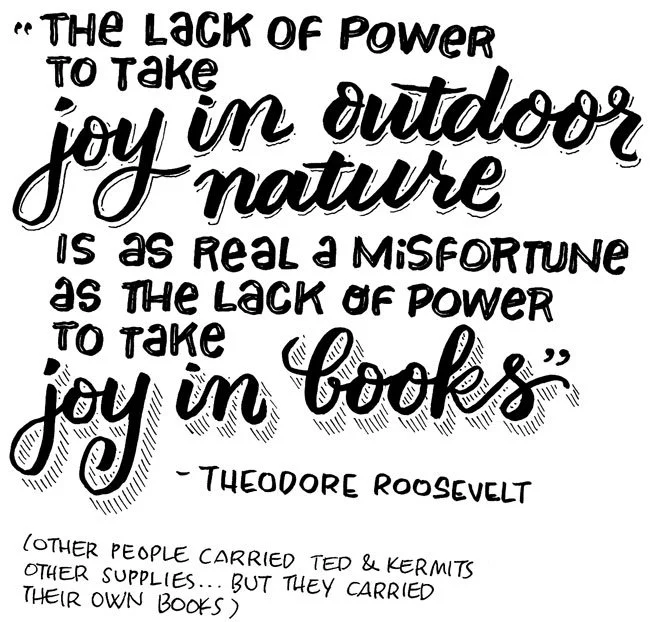 “THE LACK OF POWER
TO TAKE
joy in outdoor
nature
IS AS REAL A MISFORTUNE
AS THE LACK OF POWER
TO TAKE
joy in books”
- THEODORE ROOSEVELT
(OTHER PEOPLE CARRIED TED & KERMITS
OTHER SUPPLIES... BUT THEY CARRIED
THEIR OWN BOOKS)